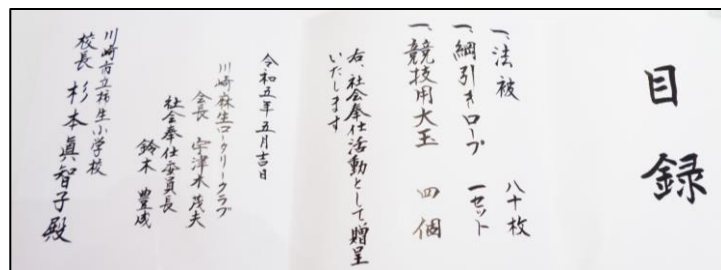 目録
一、法被 八十枚
一、綱引きロープ 一セット
一、競技用大玉 四個
右、社会奉仕活動として贈呈
いたします
令和五年五月吉日
川崎麻生ロータリークラブ
会長 宇津木茂夫
社会奉仕委員長
鈴木 豊成
川崎市立柿生小学校
校長 杉本眞智子殿